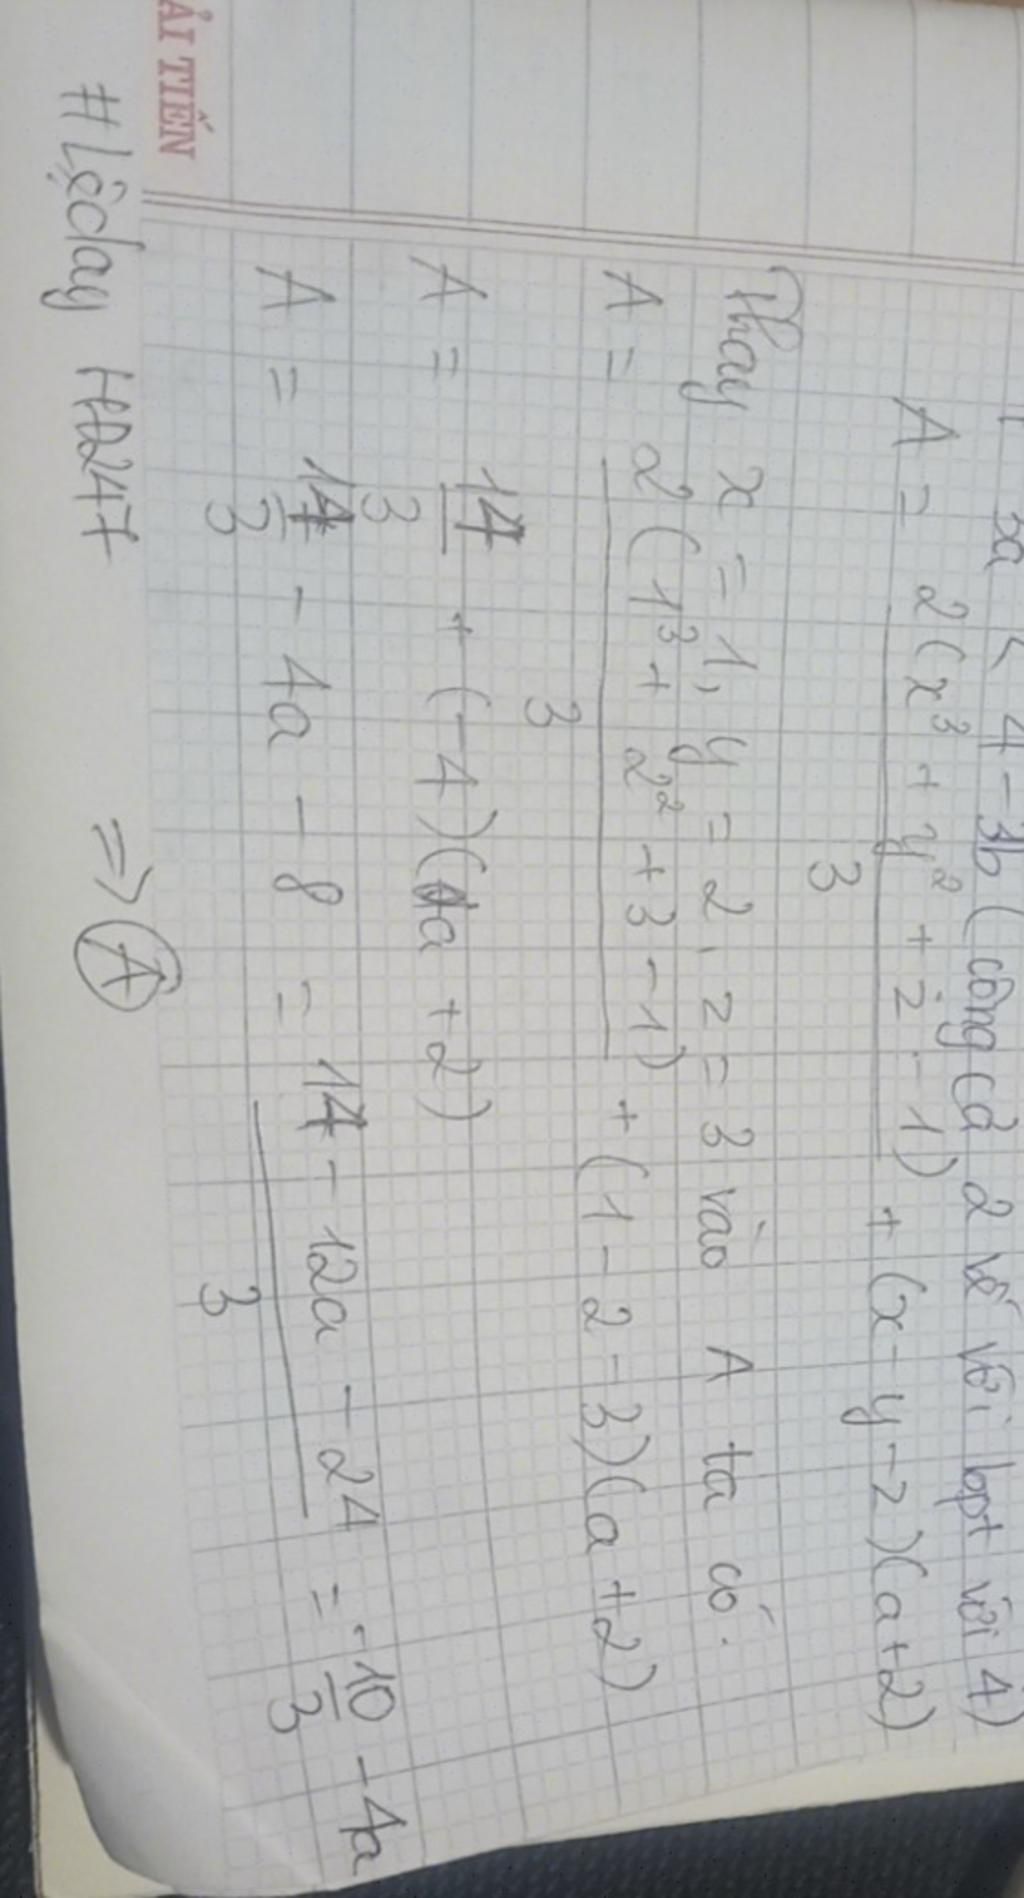 3a < 4 - 3b (cộng cả 2 vế với bpt với 4)
A = 2(x³ + y² + z - 1) / 3 + (x - y - z)(a + 2)
Thay x = 1, y = 2, z = 3 vào A ta có.
A = 2(1³ + 2² + 3 - 1) / 3 + (1 - 2 - 3)(a + 2)
A = 14/3 + (-4)(a + 2)
A = 14/3 - 4a - 8 = 14 - 12a - 24 / 3 = -10/3 - 4a
ẢI TIẾN
#Lệclay HĐ247 => A